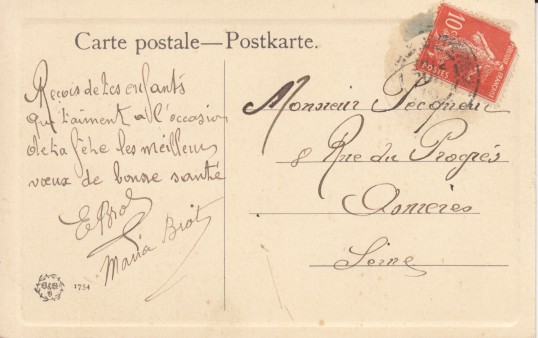 Carte postale—Postkarte.
10c
POSTES
Reçois de tes enfants
qui t'aiment à l'occasion
de ta fête les meilleurs
vœux de bonne santé
Maria Briot
1754
Monsieur Pecqueur
8 Rue du Progrés
Asnières
Seine